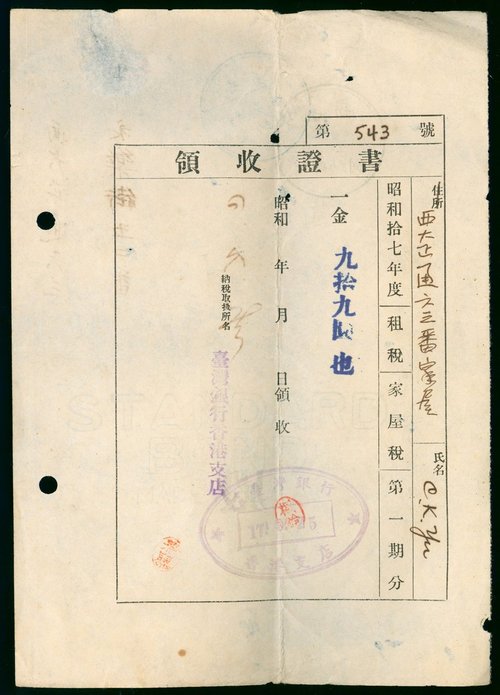 第 543 號
領收證書
住所 西大正通六三番家屋
氏名 C.K.Yu
昭和拾七年度 租稅 家屋稅 第一期分
一金 九拾九圓也
昭和 年 月 日領收
納稅取扱所名
臺灣銀行香港支店
臺灣銀行
香港支店